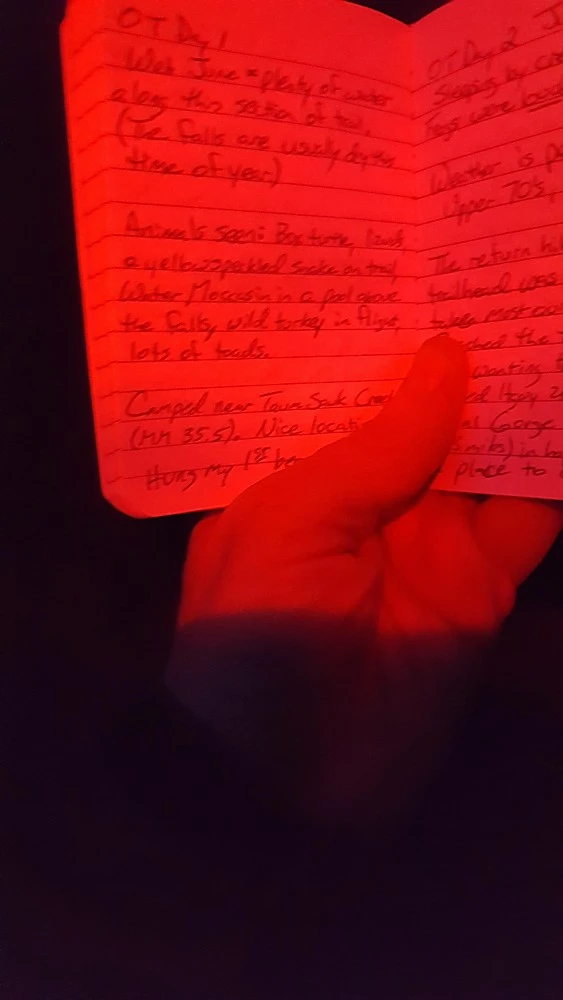 OT Day 1
Wet June = plenty of water
along this section of trail.
(The falls are usually dry this
time of year)
Animals seen: Box turtle, lizards,
a yellow speckled snake on trail,
Water Moccasin in a pool above
the falls, wild turkey in flight,
lots of toads.
Camped near Taum Sauk Creek
(MM 35.5). Nice locati
Hung my 1st be
OT Day 2 J
Sleeping by
frogs were
Weather is
upper 70's,
The return
trailhead was
takes most
the
wanting
Hgy
Gorge
mi
place to